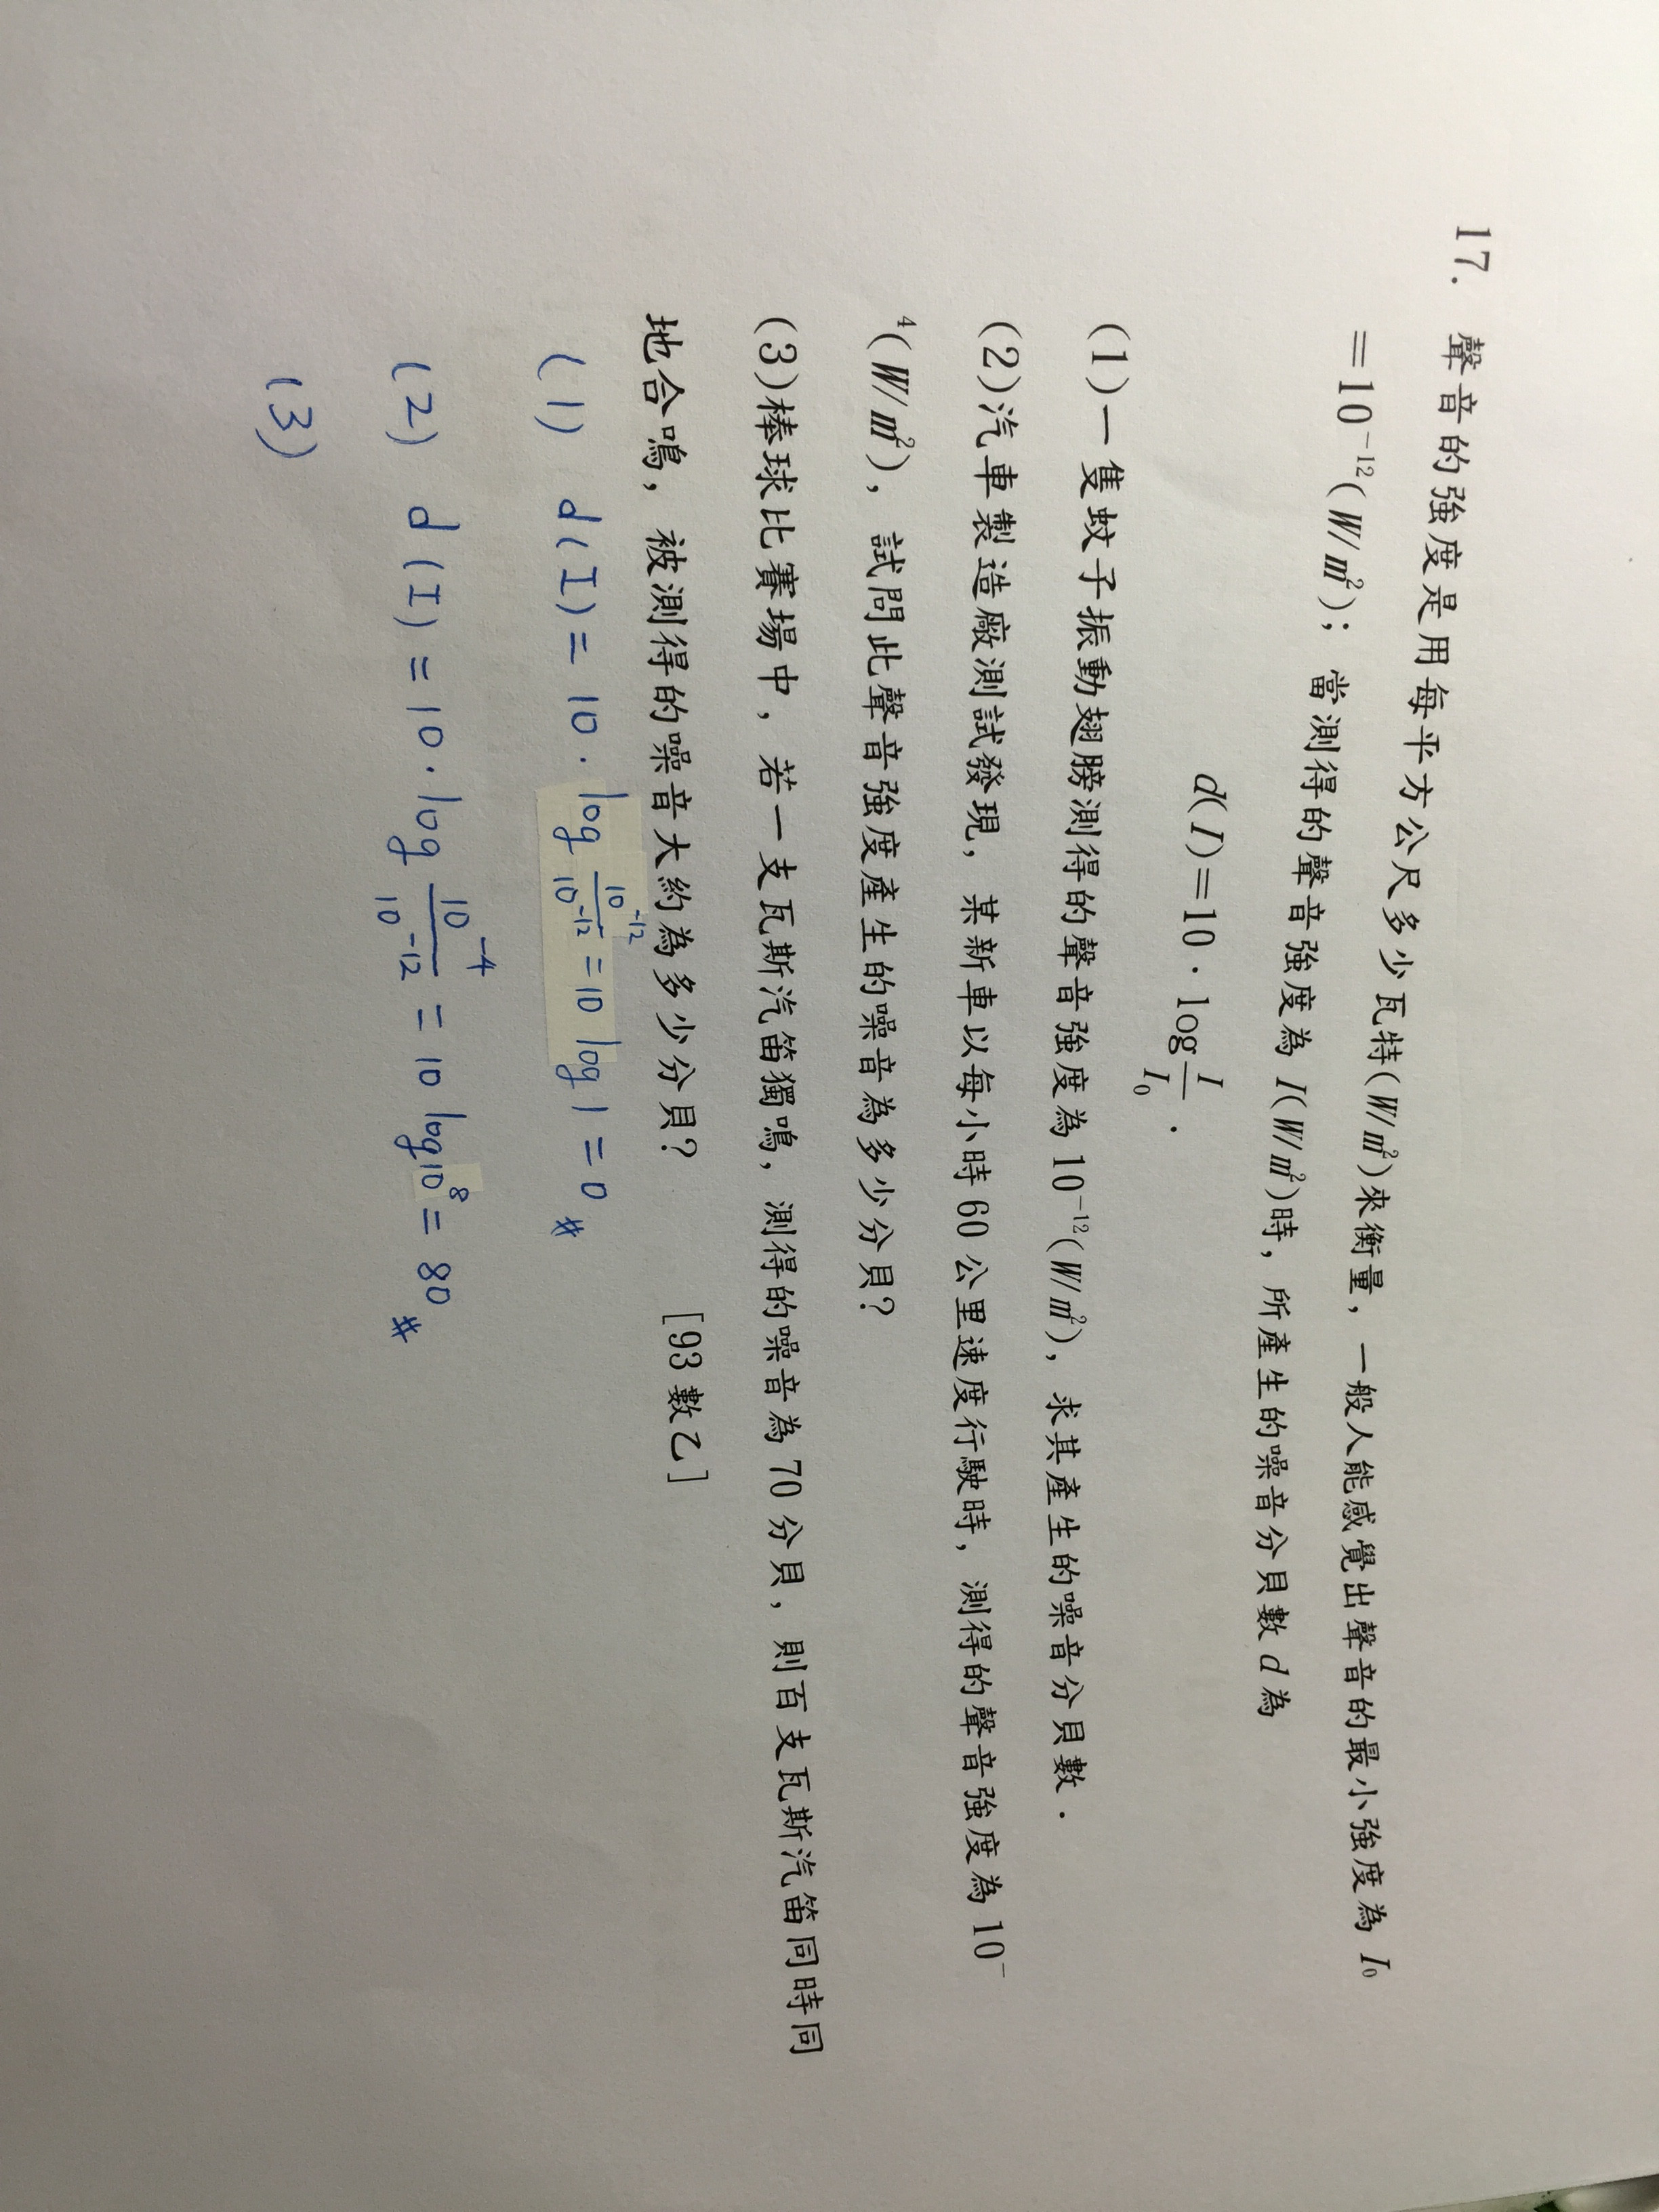 17. 聲音的強度是用每平方公尺多少瓦特(W/m²)來衡量，一般人能感覺出聲音的最小強度為 I₀
=10⁻¹²(W/m²)；當測得的聲音強度為 I(W/m²)時，所產生的噪音分貝數 d 為
d(I)=10．log I/I₀．
(1)一隻蚊子振動翅膀測得的聲音強度為 10⁻¹²(W/m²)，求其產生的噪音分貝數．
(2)汽車製造廠測試發現，某新車以每小時 60 公里速度行駛時，測得的聲音強度為 10⁻
⁴(W/m²)，試問此聲音強度產生的噪音為多少分貝？
(3)棒球比賽場中，若一支瓦斯汽笛獨鳴，測得的噪音為 70 分貝，則百支瓦斯汽笛同時同
地合鳴，被測得的噪音大約為多少分貝？ [93 數乙]
(1) d(I) = 10 · log 10⁻¹²/10⁻¹² = 10 log 1 = 0 #
(2) d(I) = 10 · log 10⁻⁴/10⁻¹² = 10 log10⁸ = 80 #
(3)